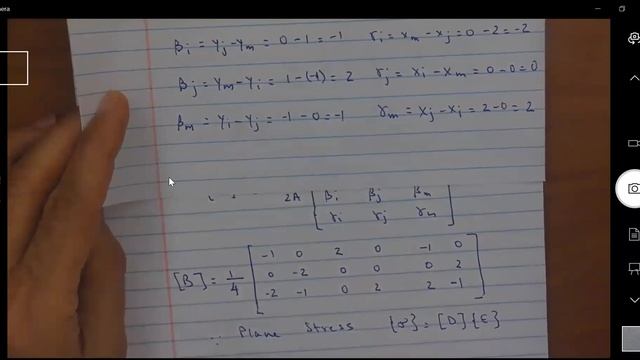 βi = yj - ym = 0 - 1 = -1 γi = xm - xj = 0 - 2 = -2
βj = ym - yi = 1 - (-1) = 2 γj = xi - xm = 0 - 0 = 0
βm = yi - yj = -1 - 0 = -1 γm = xj - xi = 2 - 0 = 2
2A [ βi βj βm
γi γj γm ]
-1 0 2 0 -1 0
[B] = 1/4 [ 0 -2 0 0 0 2 ]
-2 -1 0 2 2 -1
∵ Plane Stress {σ} = [D]{ε}